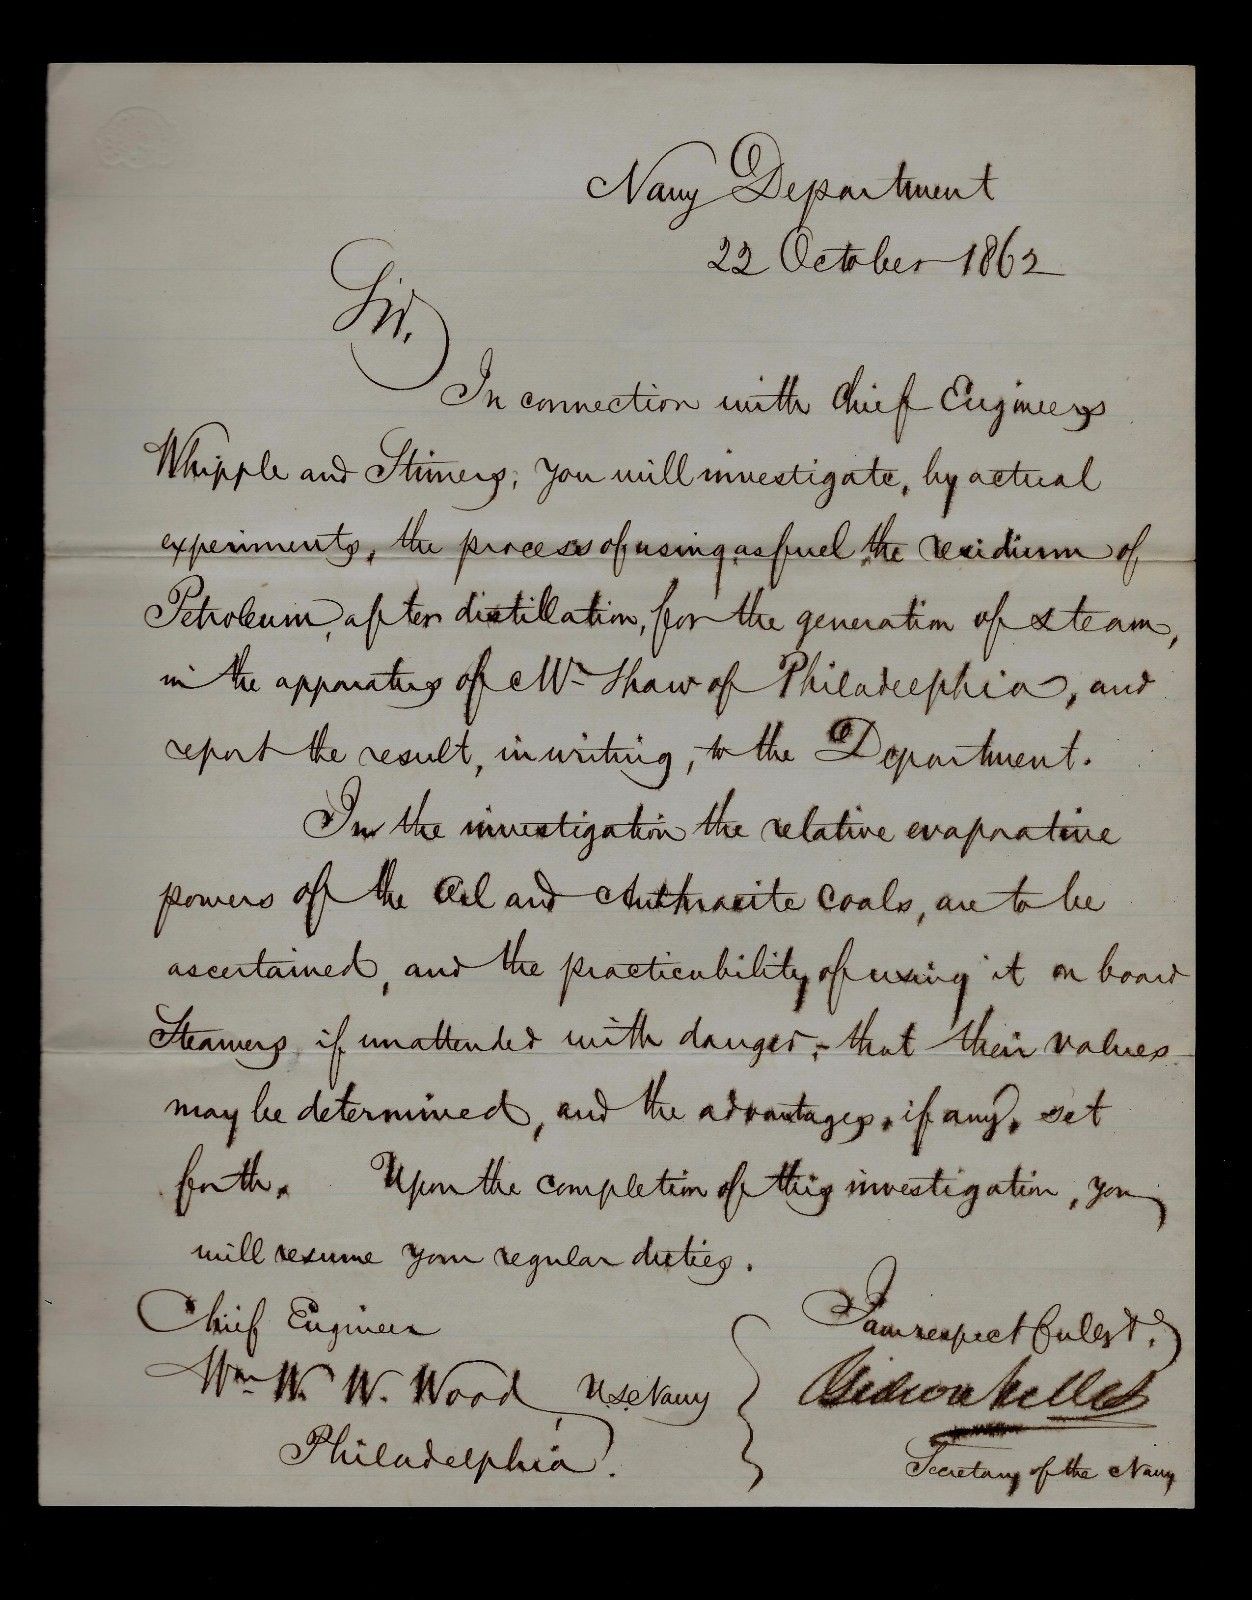 Navy Department
22 October 1862
Sir,
In connection with Chief Engineers
Whipple and Stimers, you will investigate, by actual
experiments, the process of using as fuel the residium of
Petroleum, after distillation, for the generation of steam,
in the apparatus of Mr Shaw of Philadelphia, and
report the result, in writing, to the Department.
In the investigation the relative evaporative
powers of the Oil and Anthracite Coals, are to be
ascertained, and the practicability of using it on board
Steamers if unattended with danger;- that their values
may be determined, and the advantages, if any, set
forth. Upon the completion of this investigation, you
will resume your regular duties.
I am respectfully,
Chief Engineer
Wm W. W. Wood, U.S. Navy
Philadelphia.
Gideon Welles
Secretary of the Navy